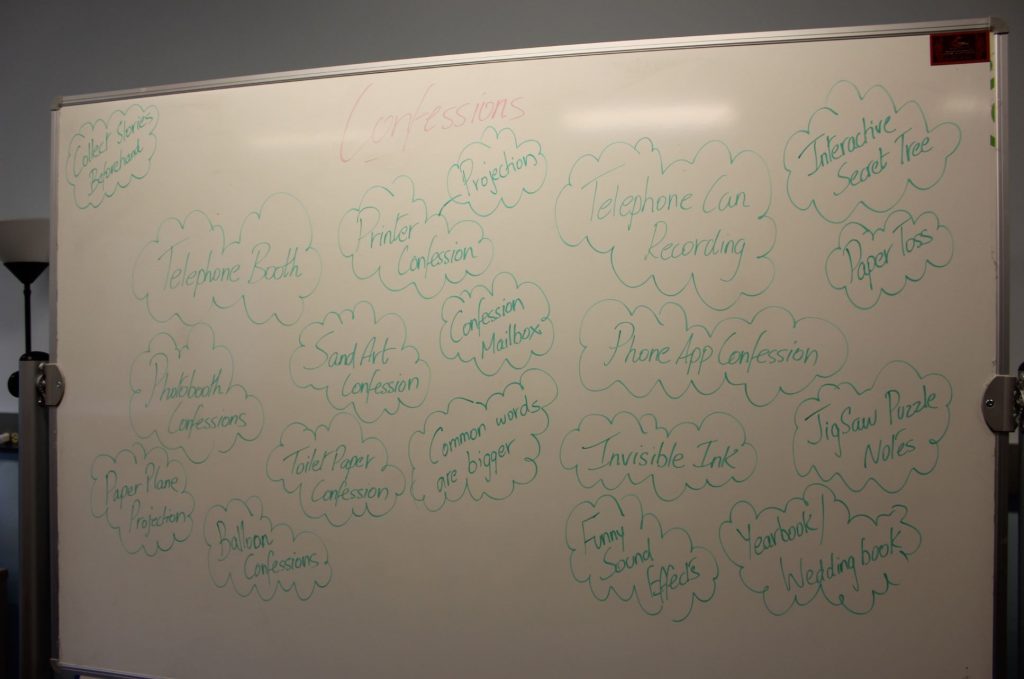 Confessions
Collect Stories
Beforehand
Telephone Booth
Printer
Confession
Projection
Telephone Can
Recording
Interactive
Secret Tree
Paper Toss
Photobooth
Confessions
Sand Art
Confession
Confession
Mailbox
Phone App Confession
Paper Plane
Projection
Toilet Paper
Confession
Common words
are bigger
Invisible Ink
JigSaw Puzzle
Notes
Balloon
Confessions
Funny
Sound
Effects
Yearbook/
Wedding book